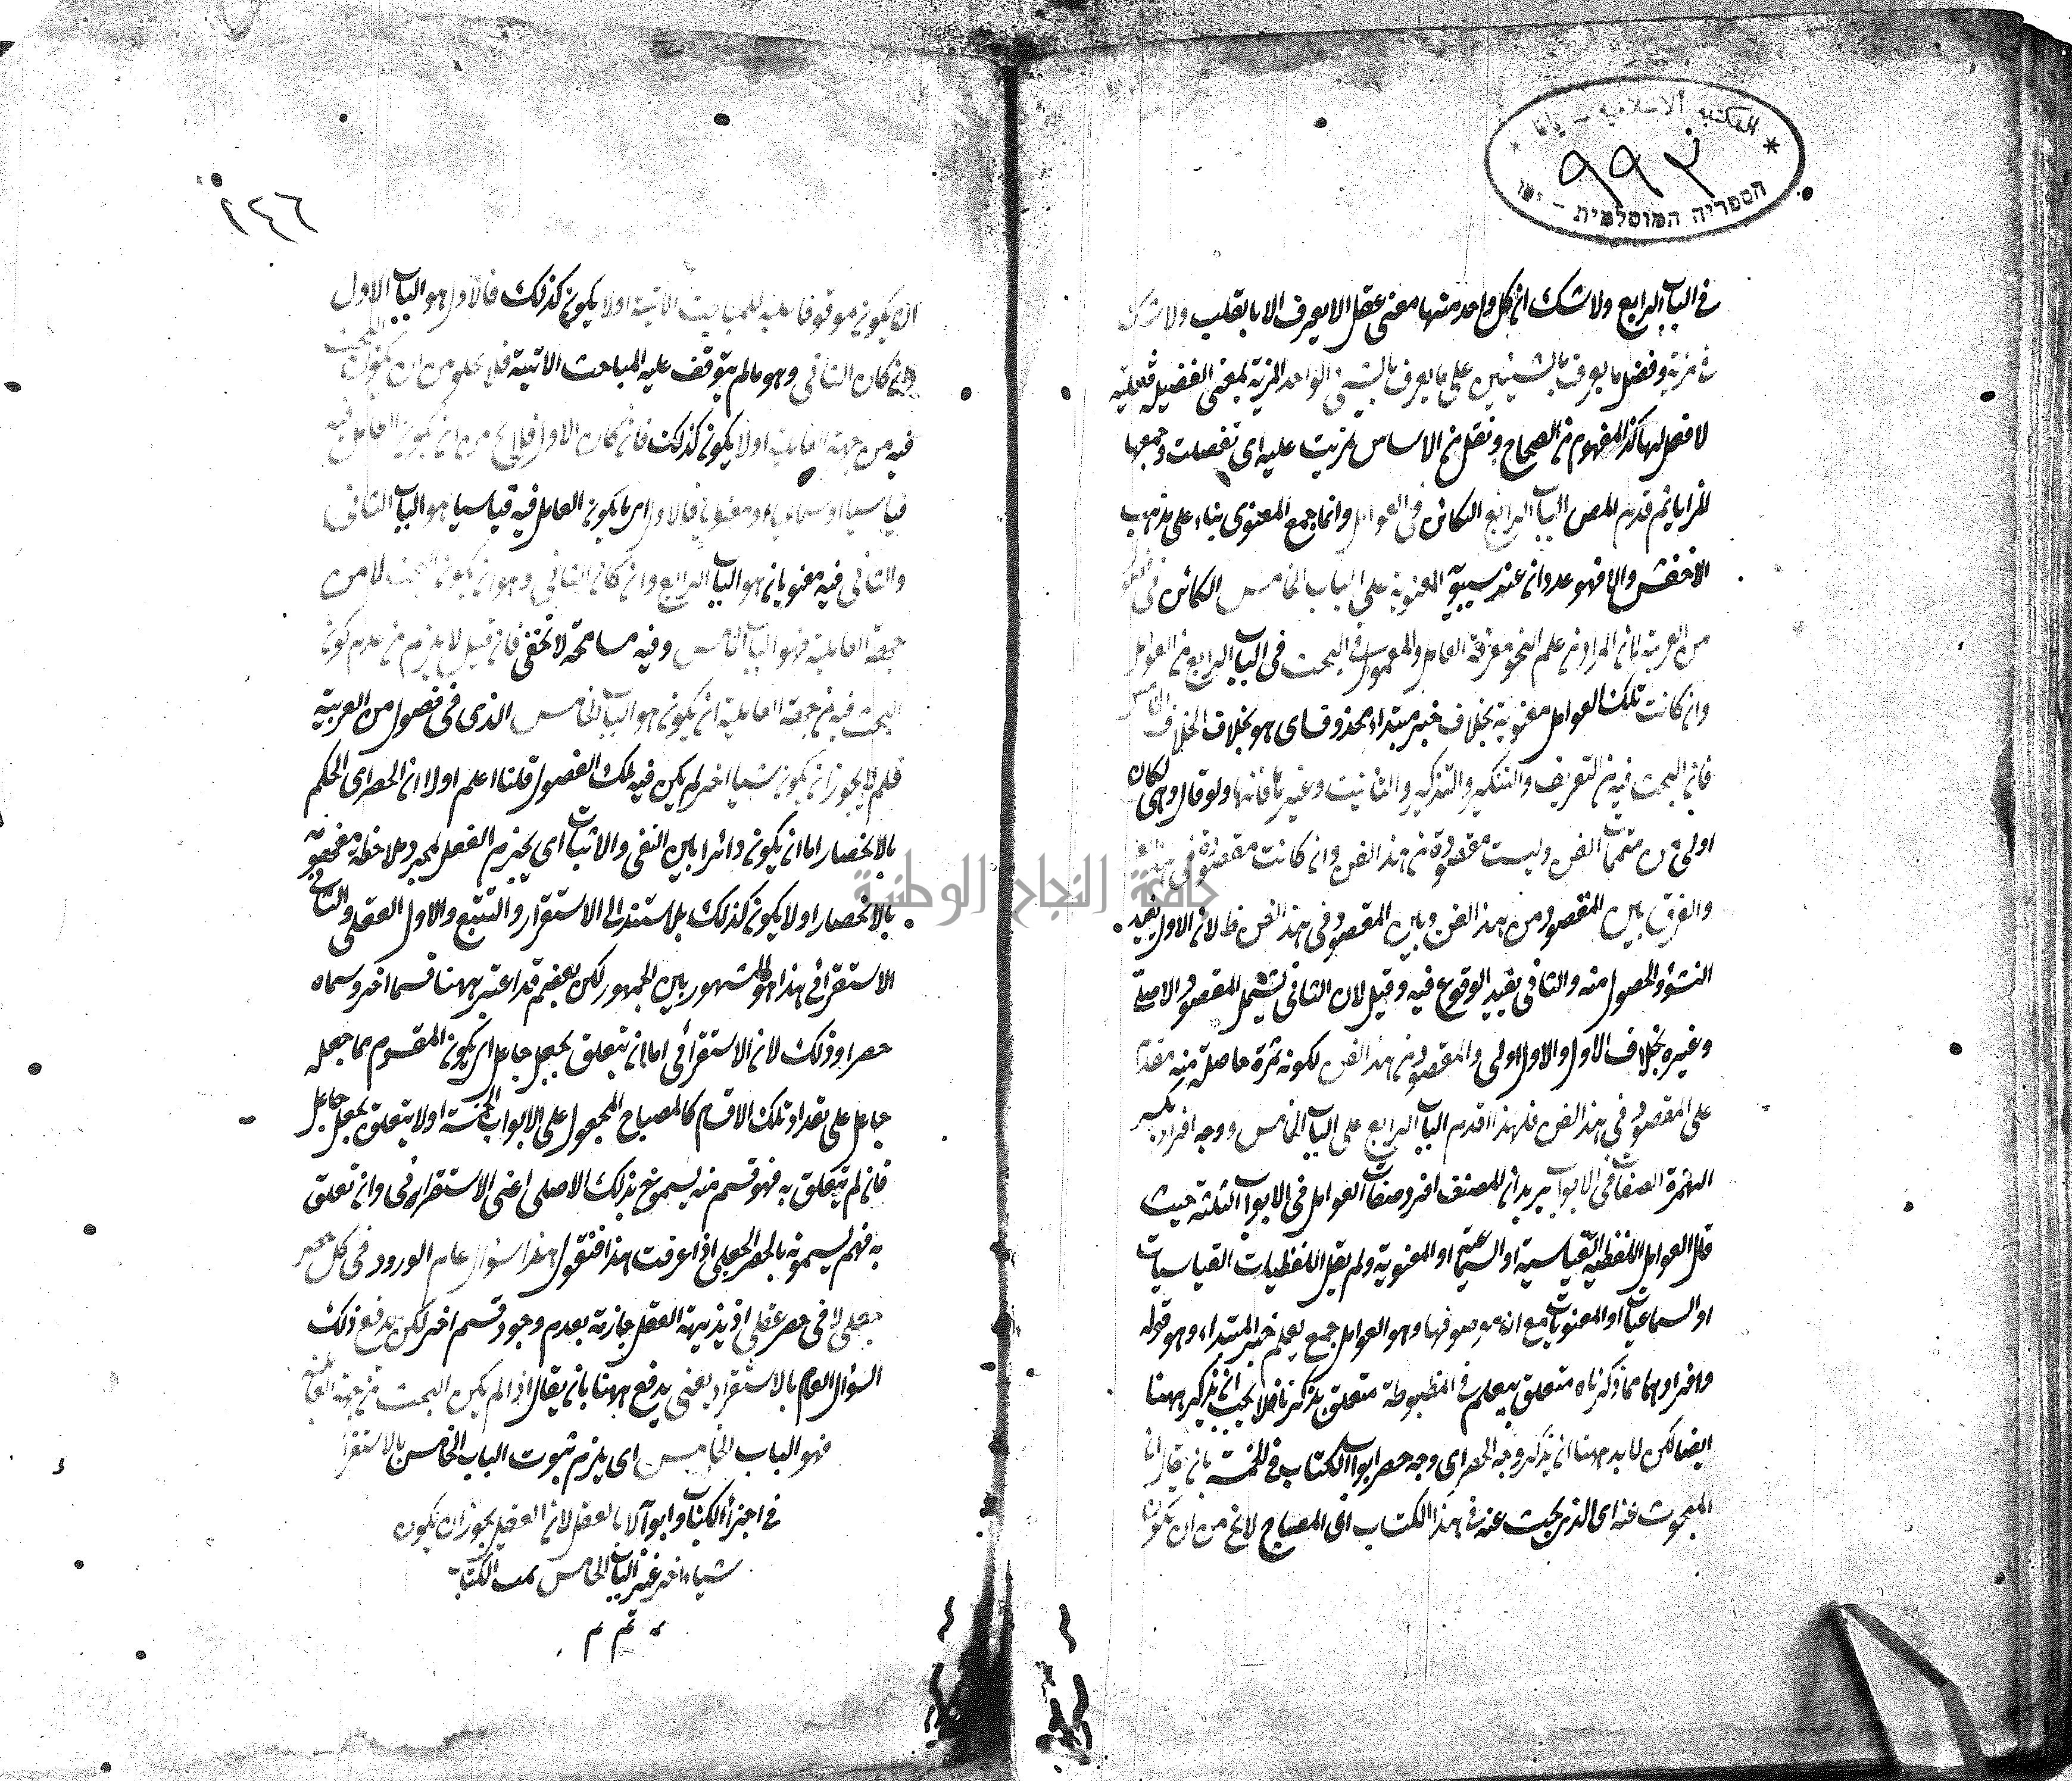 المكتبة الاسلامية - يافا
٩٩٣
הספריה המוסלמית - יפו
في الباب الرابع ولا شك ان كل واحد منها معنى عقلي لا يعرف الا بالقلب ولا شك
في مزية وفضل ما يعرف بالشيئين على ما يعرف بالشيء الواحد المزية بمعنى الفضيلة
لا فصل لها كذا المفهوم من الصحاح ونقل من الاساس مزيت عليه اى تفضلت وجمعها
المزايا ثم قدم المص الباب الرابع الكائن في العوامل وانما جمع المعنوى بناء على مذهب
الاخفش والا فهو عددان عند سيبويه المعنوية على الباب الخامس الكائن في
من العربية لان المراد من علم النحو معرفة العامل والمعمول في البحث في الباب الرابع من العوامل
وان كانت تلك العوامل معنوية بخلاف خبر مبتداء محذوف اى هو بخلاف الخلاف
فان البحث فيه من التعريف والتنكير والتذكير والتانيث وغيرها فانها ولو قال وهى لكان
اولى من متممات الفن وليست مقصودة من هذا الفن وان كانت مقصودة في هذا
والفرق بين المقصود من هذا الفن وبين المقصود في هذا الفن ظ لان الاول يفيد
النشؤ والحصول منه والثاني يفيد الوقوع فيه وقيل لان الثاني يشمل المقصود الاصلى
وغيره بخلاف الاول والاول اولى والمقصود من هذا الفن لكونه ثمرة حاصلة منه مقدم
على المقصود في هذا الفن فلهذا قدم الباب الرابع على الباب الخامس ووجه افراد
الصفات في الابواب يريد ان المصنف افرد صفات العوامل في الابواب الثلثة حيث
قال العوامل اللفظية القياسية او السماعية او المعنوية ولم يقل اللفظيات القياسيات
او السماعيات او المعنويات مع ان موصوفها وهو العوامل جمع يعلم خبر المبتداء وهو قوله
وافراد مما ذكرناه متعلق بيعلم في المضبوطة متعلق بذكرنا فلا يجب ان يذكر ههنا
ايضا لكن لا بد ههنا ان يذكر وجه الحصر اى وجه حصر ابواب الكتاب في الخمسة بان يقال ان
المبحوث عنه اى الذى يبحث عنه في هذا الكتاب اى المصباح لا يخ من ان يكون
١٤٦
ان يكون موقوفا عليه للمباحث الاتية او لا يكون كذلك فالاول هو الباب الاول
وان كان الثاني وهو ما لم يتوقف عليه المباحث الاتية فلا يخلو من ان يكون البحث
فيه من جهة العاملية او لا يكون كذلك فان كان الاول فلا يخ من ان يكون العامل فيه
قياسيا او سماعيا او معنويا فالاول اى ما يكون العامل فيه قياسيا هو الباب الثاني
والثاني فيه معنويا هو الباب الرابع وان كان الثاني وهو ان يكون البحث لا من
جهة العاملية فهو الباب الخامس وفيه مسامحة لا تخفى فان قيل لا يلزم من عدم كون
البحث فيه من جهة العاملية ان يكون هو الباب الخامس الذى في فصول من العربية
فلم لا يجوز ان يكون شيا اخر لم يكن فيه تلك الفصول قلنا اعلم اولا ان الحصر اى الحكم
بالانحصار اما ان يكون دائرا بين النفي والاثبات اى يجزم العقل بمجرد ملاحظة مفهومه
بالانحصار او لا يكون كذلك بل استند الى الاستقرار والتتبع والاول العقلي والثاني
الاستقرائي هذا هو المشهور بين الجمهور لكن بعضهم قد اعتبر ههنا قسما اخر وسماه
حصرا وذلك لان الاستقرائي اما ان يتعلق بجعل جاعل اى يكون المقسوم مما جعله
جاعل على تعداد تلك الاقسام كالمصباح المجعول على الابواب الخمسة او لا يتعلق بجعل جاعل
فان لم يتعلق به فهو قسم منه يسموخ بذلك الاصلى اعنى الاستقرائي وان تعلق
به فهم يسمونه بالحصر الجعلى اذا عرفت هذا فنقول هذا سؤال عام الورود في كل حصر
جعلى لا في حصر عقلي اذ بديهة العقل جازمة بعدم وجود قسم اخر لكن يدفع ذلك
السؤال العام بالاستقراء يعنى يدفع ههنا بان يقال اذا لم يكن البحث من جهة
فهو الباب الخامس اى يلزم ثبوت الباب الخامس بالاستقراء
في اجزأ الكتاب وابوابه لا بالعقل لان العقل يجوز ان يكون
شياء اخر غير الباب الخامس تمت الكتاب
تم م
جامعة النجاح الوطنية